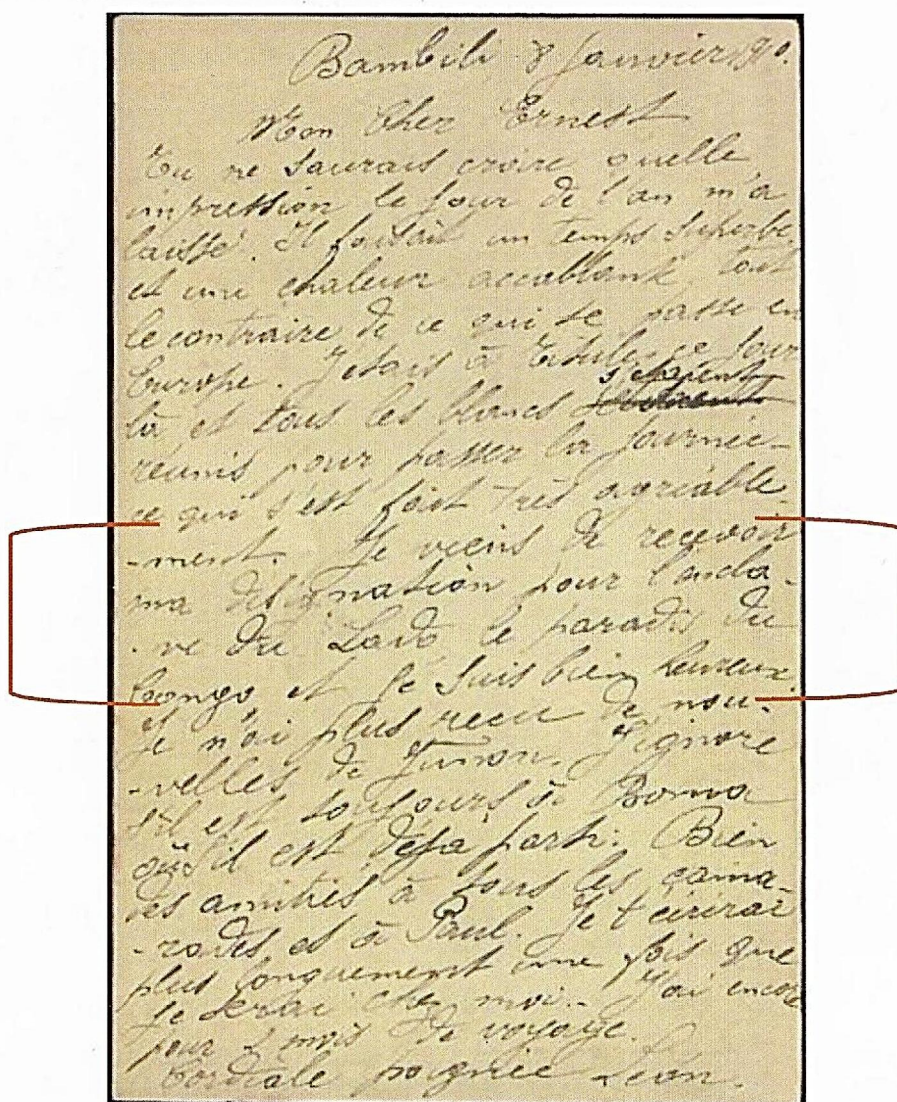 Bambili 8 Janvier 1910.
Mon Cher Ernest
Tu ne saurais croire quelle
impression le jour de l'an m'a
laissé. Il faisait un temps superbe
et une chaleur accablante, tout
le contraire de ce qui se passe en
Europe. J'étais à ce jour
là et tous les blancs s'étaient
réunis pour passer la journée
ce qui s'est fait très agréable-
-ment. Je viens de recevoir
ma désignation pour l'encla-
-ve du Lado, le paradis du
Congo, et je suis bien heureux.
Je n'ai plus recu de nou-
-velles de J'ignore
s'il est toujours à Boma
où s'il est déja parti. Bien
des amitiés à tous les cama-
-rades et à Paul. Je t'ecrirai
plus longuement une fois que
je serai chez moi. J'ai encore
pour 2 mois de voyage.
Cordiale poignée Léon.